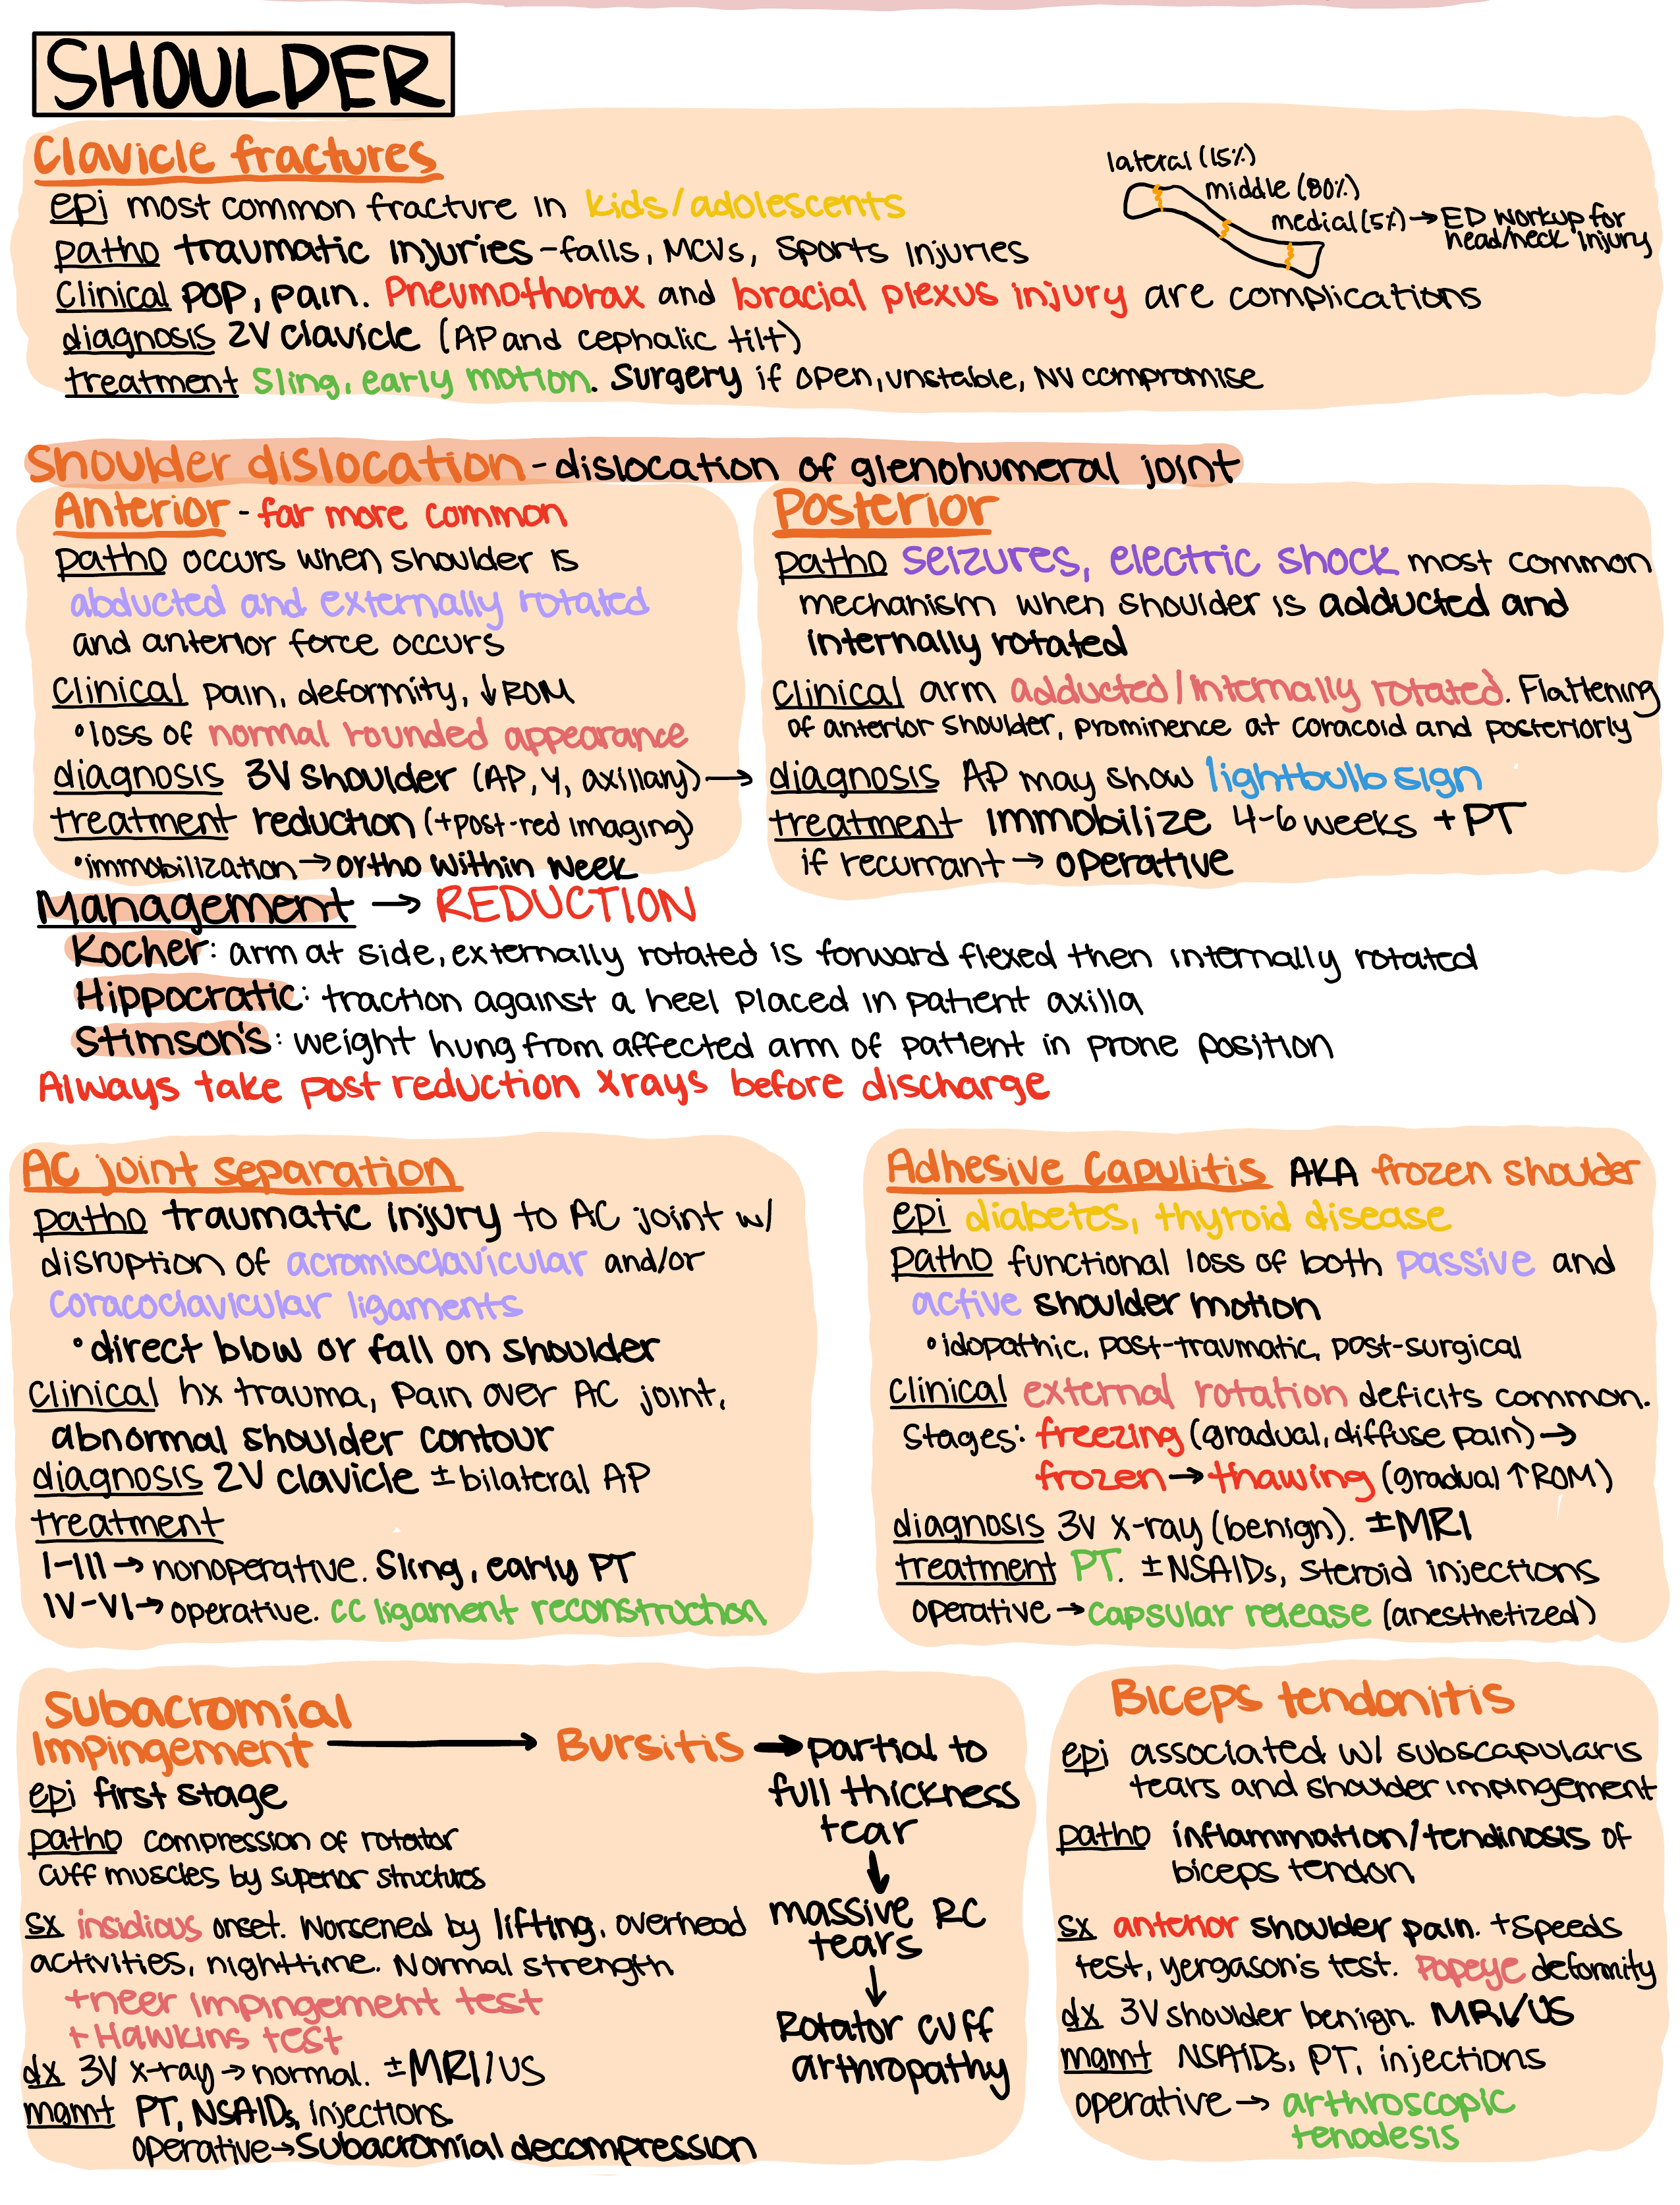 SHOULDER
Clavicle fractures
epi most common fracture in kids/adolescents
patho traumatic injuries - falls, MCVs, sports injuries
clinical pop, pain. Pneumothorax and bracial plexus injury are complications
diagnosis 2V clavicle (AP and cephalic tilt)
treatment sling, early motion. Surgery if open, unstable, NV compromise
lateral (15%)
middle (80%)
medial (5%) → ED workup for
head/neck injury
Shoulder dislocation - dislocation of glenohumeral joint
Anterior - far more common
patho occurs when shoulder is
abducted and externally rotated
and anterior force occurs
clinical pain, deformity, ↓ROM
• loss of normal rounded appearance
diagnosis 3V shoulder (AP, Y, axillary) →
treatment reduction (+post-red imaging)
• immobilization → ortho within week
Posterior
patho seizures, electric shock most common
mechanism when shoulder is adducted and
internally rotated
clinical arm adducted/internally rotated. Flattening
of anterior shoulder, prominence at coracoid and posteriorly
diagnosis AP may show lightbulb sign
treatment immobilize 4-6 weeks + PT
if recurrant → operative
Management → REDUCTION
Kocher: arm at side, externally rotated is forward flexed then internally rotated
Hippocratic: traction against a heel placed in patient axilla
Stimson's: weight hung from affected arm of patient in prone position
Always take post reduction xrays before discharge
AC joint separation
patho traumatic injury to AC joint w/
disruption of acromioclavicular and/or
coracoclavicular ligaments
• direct blow or fall on shoulder
clinical hx trauma, pain over AC joint,
abnormal shoulder contour
diagnosis 2V clavicle ± bilateral AP
treatment
I-III → nonoperative. Sling, early PT
IV-VI → operative. CC ligament reconstruction
Adhesive Capulitis AKA frozen shoulder
epi diabetes, thyroid disease
patho functional loss of both passive and
active shoulder motion
• idopathic, post-traumatic, post-surgical
clinical external rotation deficits common.
Stages: freezing (gradual, diffuse pain) →
frozen → thawing (gradual ↑ROM)
diagnosis 3V x-ray (benign). ±MRI
treatment PT. ±NSAIDs, steroid injections
operative → capsular release (anesthetized)
Subacromial
Impingement → Bursitis → partial to
full thickness
tear
↓
massive RC
tears
↓
Rotator cuff
arthropathy
epi first stage
patho compression of rotator
cuff muscles by superior structures
sx insidious onset. Worsened by lifting, overhead
activities, nighttime. Normal strength
+neer impingement test
+Hawkins test
dx 3V x-ray → normal. ±MRI/US
mgmt PT, NSAIDs, injections
operative → subacromial decompression
Biceps tendonitis
epi associated w/ subscapularis
tears and shoulder impingement
patho inflammation/tendinosis of
biceps tendon
sx anterior shoulder pain. +speeds
test, yergason's test. Popeye deformity
dx 3V shoulder benign. MRI/US
mgmt NSAIDs, PT, injections
operative → arthroscopic
tenodesis